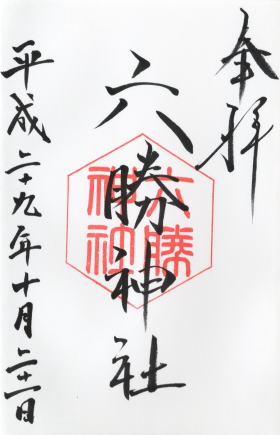 奉拝
六勝神社
六勝
神社
平成二十九年十月二十一日